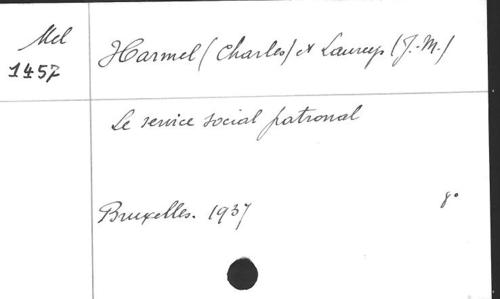 Mel
1457
Harmel (Charles) et Laureys (J.-M.)
Le service social patronal
Bruxelles. 1937
8°